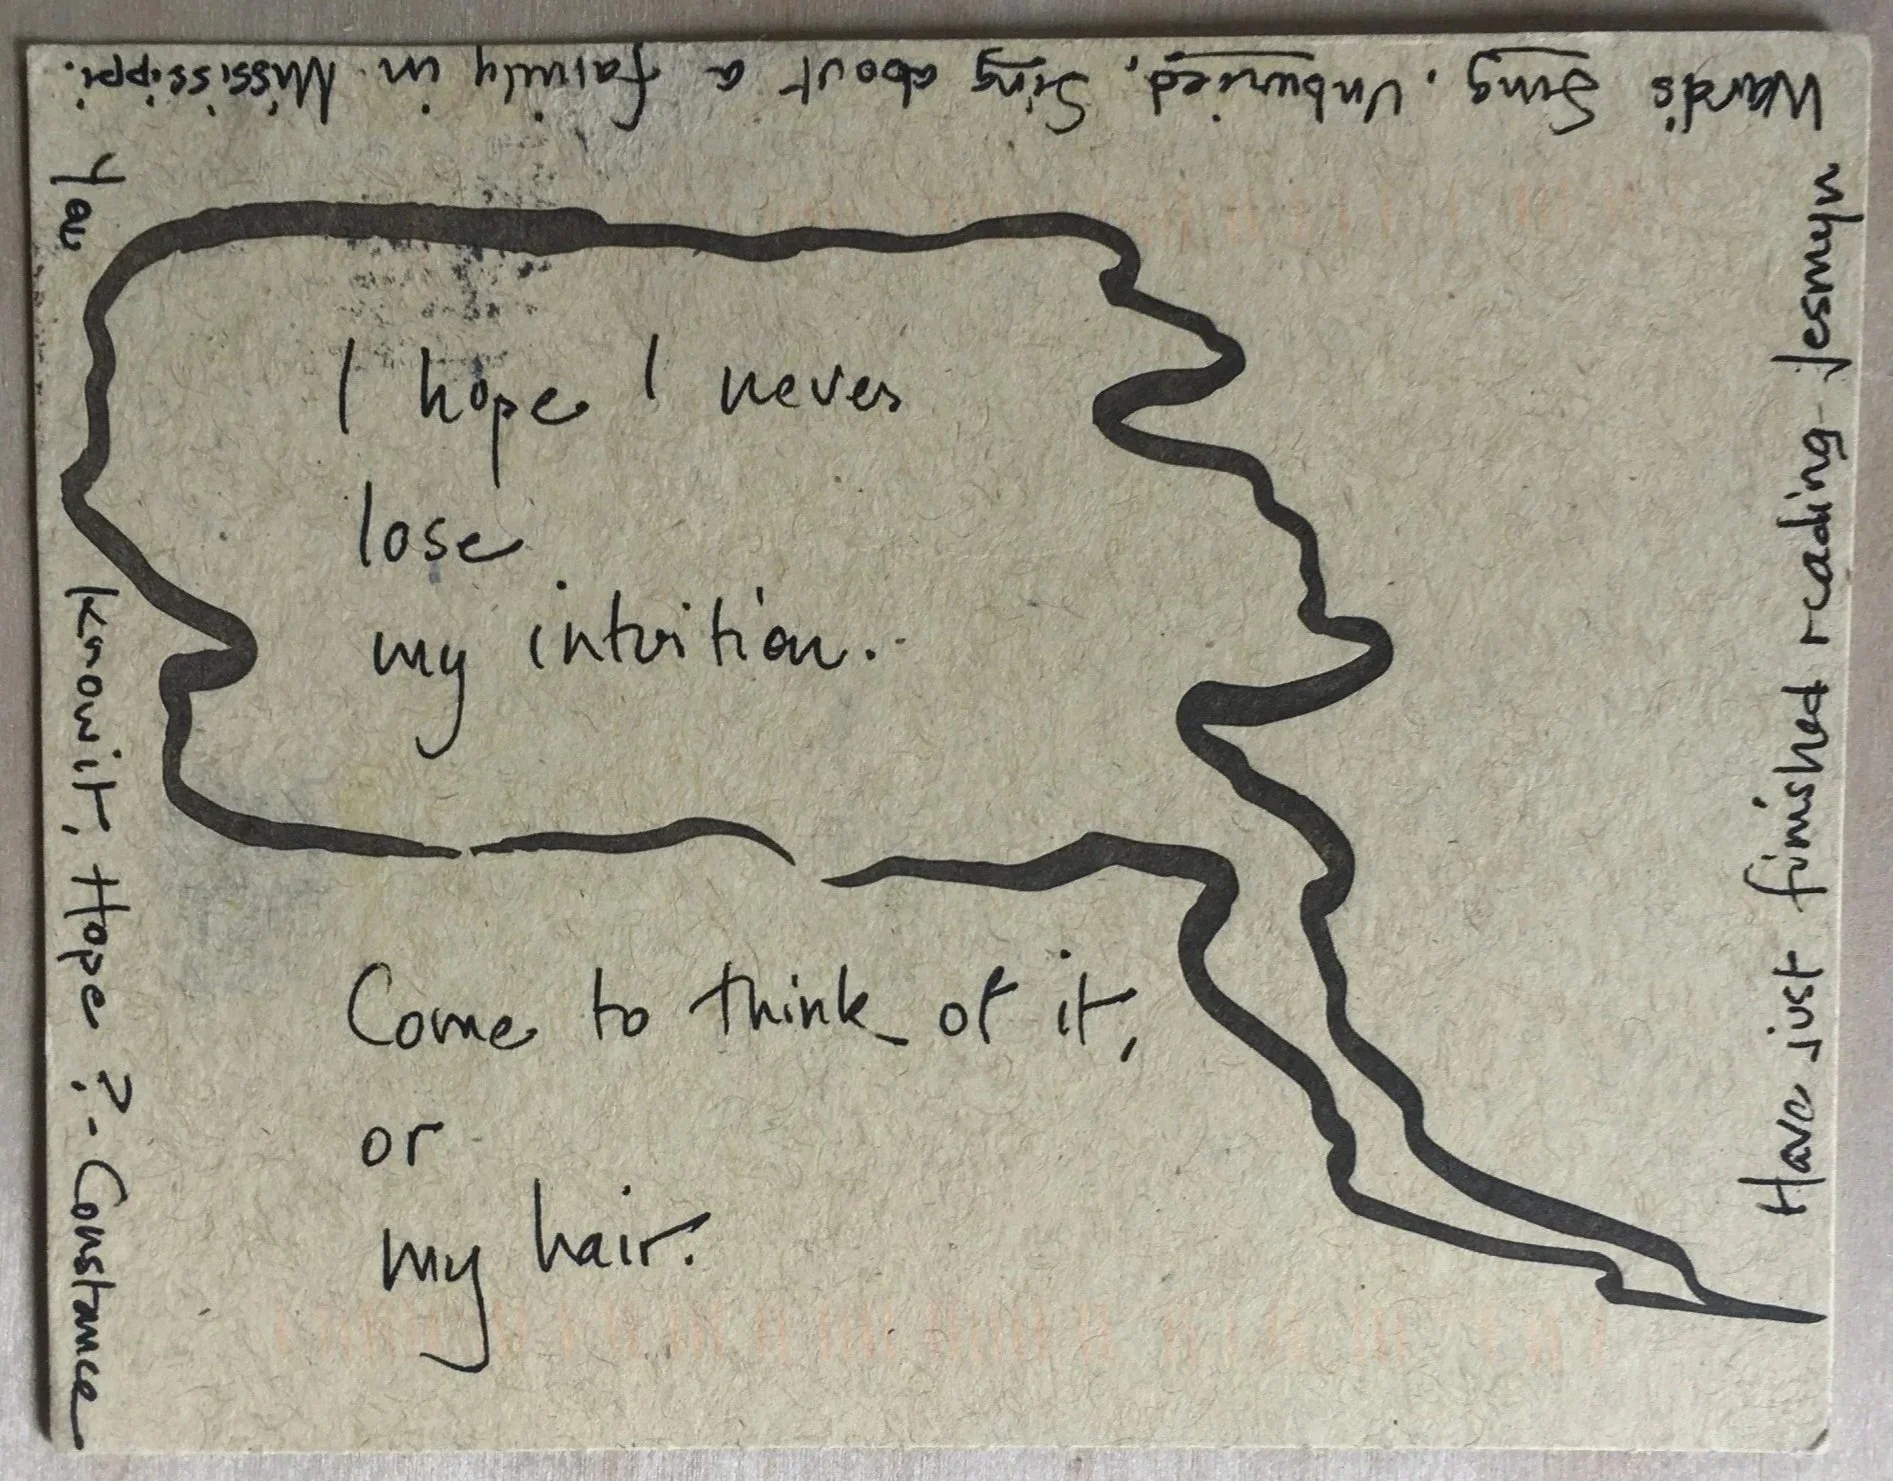 I hope I never
lose
my intuition.
Come to think of it,
or
my hair.
Have just finished reading Jesmyn
Ward's Sing, Unburied, Sing about a family in Mississippi.
You know it, Hope? - Constance